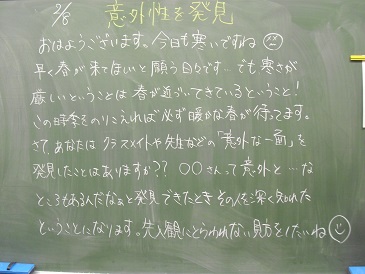 2/8 意外性を発見
おはようございます。今日も寒いですね
早く春が来てほしいと願う日々です…でも寒さが
厳しいということは春が近づいてきているということ！
この時季をのりこえれば必ず暖かな春が待ってます。
さて、あなたはクラスメイトや先生などの「意外な一面」を
発見したことはありますか？？ ○○さんって意外と…な
ところもあるんだなぁと発見できたときその人を深く知れた
ということになります。先入観にとらわれない見方をしたいね